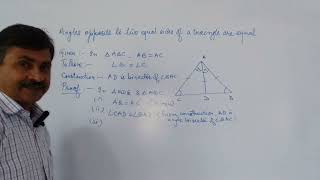 Angles opposite to two equal sides of a triangle are equal
Given :- In △ABC, AB=AC
To Prove :- ∠B = ∠C
Construction :- AD is bisector of ∠BAC
Proof :- In
(i) AB = AC
(ii) (from construction AD is
angle bisector of ∠BAC)
(iii)
D